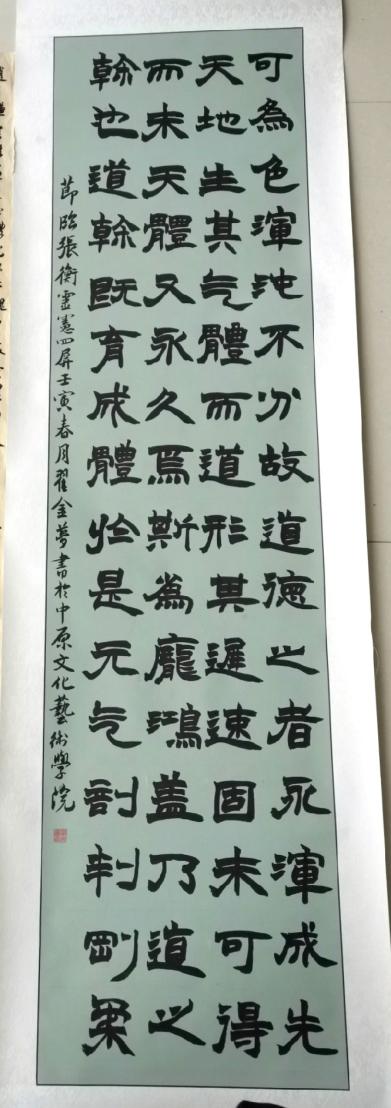 可為色渾沌不分故道德之者永渾成先
天地生其气體而道形其遲速固未可得
而未天體又永久焉斯為龐鴻蓋乃道之
幹也道幹既育成體於是元气剖判剛柔
節臨張衡靈憲四屏壬寅春月翟金夢書於中原文化藝術學院